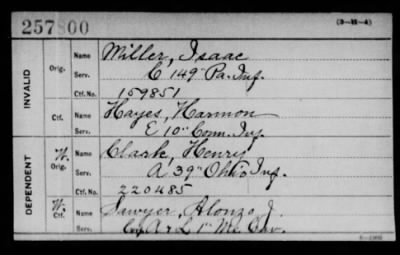 257800 (3-M-4)
INVALID
Orig. Name Miller, Isaac
Serv. C 149" Pa. Inf.
Ctf. No. 159851
Ctf. Name Hayes, Harmon
Serv. E 10" Conn. Inf.
DEPENDENT
W. Orig. Name Clark, Henry
Serv. A 39" Ohio Inf.
Ctf. No. 220485
W. Ctf. Name Sawyer, Alonzo J.
Serv. Co A & L 1" Me. Cav.